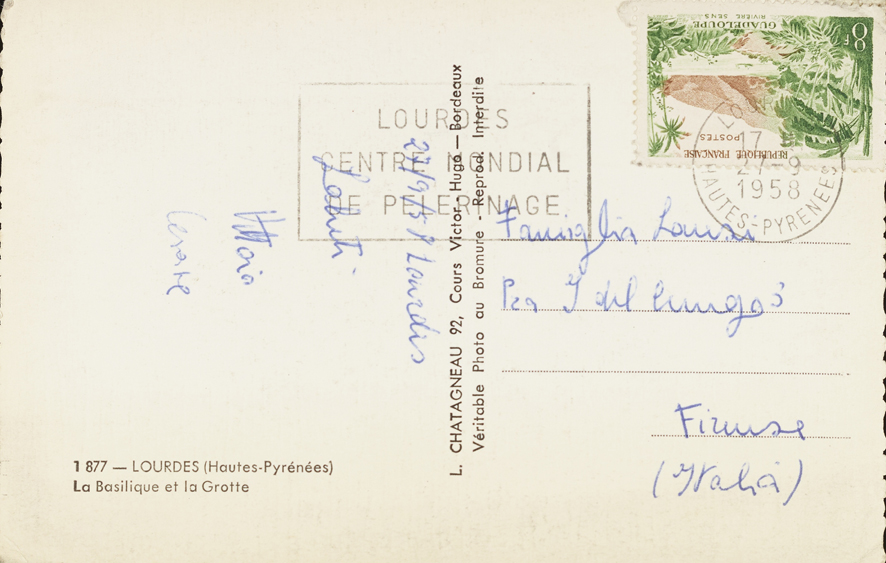 LOURDES
CENTRE MONDIAL
DE PELERINAGE
8F
GUADELOUPE
RIVIÈRE SENS
POSTES
REPUBLIQUE FRANÇAISE
17
27-9
1958
HAUTES-PYRENEES
Lourdes
Saluti
Cesare
L. CHATAGNEAU 92, Cours Victor-Hugo — Bordeaux
Véritable Photo au Bromure - Reprod. Interdite
Famiglia
Firenze
(Italia)
1 877 — LOURDES (Hautes-Pyrénées)
La Basilique et la Grotte